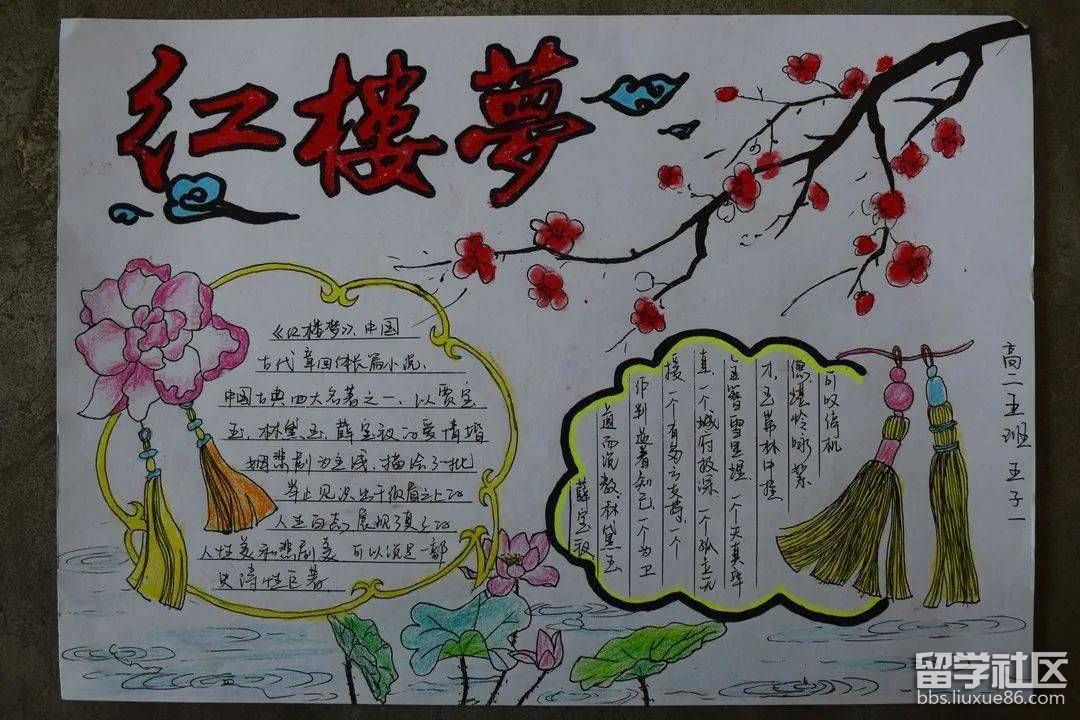 红楼夢
《红楼梦》、中国
古代章回体长篇小说、
中国古典四大名著之一、以贾宝
玉、林黛玉、薛宝钗的爱情婚
姻悲剧为主线、描绘了一批
举止见识出于须眉之上的
人生百态、展现了真正的
人性美和悲剧美、可以说是一部
史诗性巨著
可叹停机
德堪怜咏絮
才、玉带林中挂
金簪雪里埋、一个天真率
真、一个城府极深、一个孤立无
接、一个有多方支持、一个
作判逆者知己、一个为卫
道而说教、林黛玉
薛宝钗
高二五班 王子一
留学社区
bbs.liuxue86.com